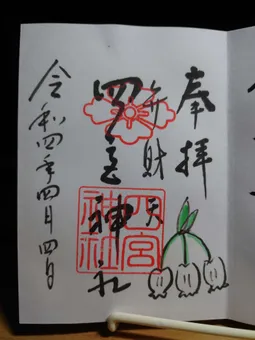 奉拝
弁財天
四宮神社
令和四年四月四日
四宮
神社